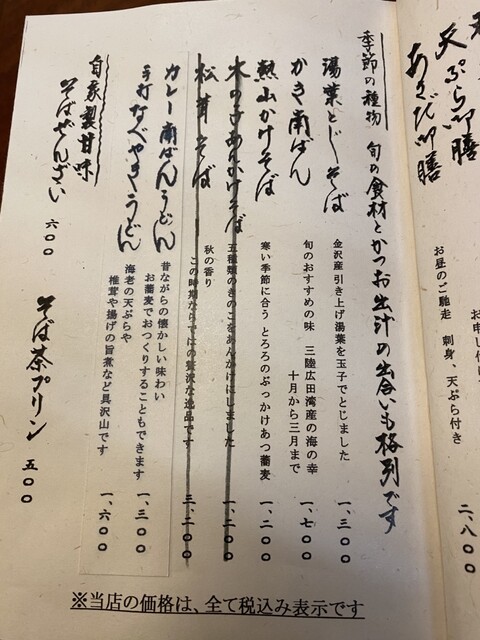 天ぷら御膳
お申し付け
二、八〇〇
あさひ御膳
お昼のご馳走　刺身、天ぷら付き
季節の種物　旬の食材とかつお出汁の出合いも格別です
湯葉とじそば
金沢産引き上げ湯葉を玉子でとじました
一、三〇〇
かき南ばん
旬のおすすめの味　三陸広田湾産の海の幸
十月から三月まで
一、七〇〇
熱山かけそば
寒い季節に合うとろろのぶっかけあつ蕎麦
一、二〇〇
木の子あんかけそば
五種類のきのこをあんかけにしました
一、二〇〇
松茸そば
秋の香り
この時期ならではの贅沢な逸品です
三、二〇〇
カレー南ばんうどん
昔ながらの懐かしい味わい
お蕎麦でおつくりすることもできます
一、三〇〇
手打なべやきうどん
海老の天ぷらや
椎茸や揚げの旨煮など具沢山です
一、六〇〇
自家製甘味
そばぜんざい　六〇〇
そば茶プリン　五〇〇
※当店の価格は、全て税込み表示です